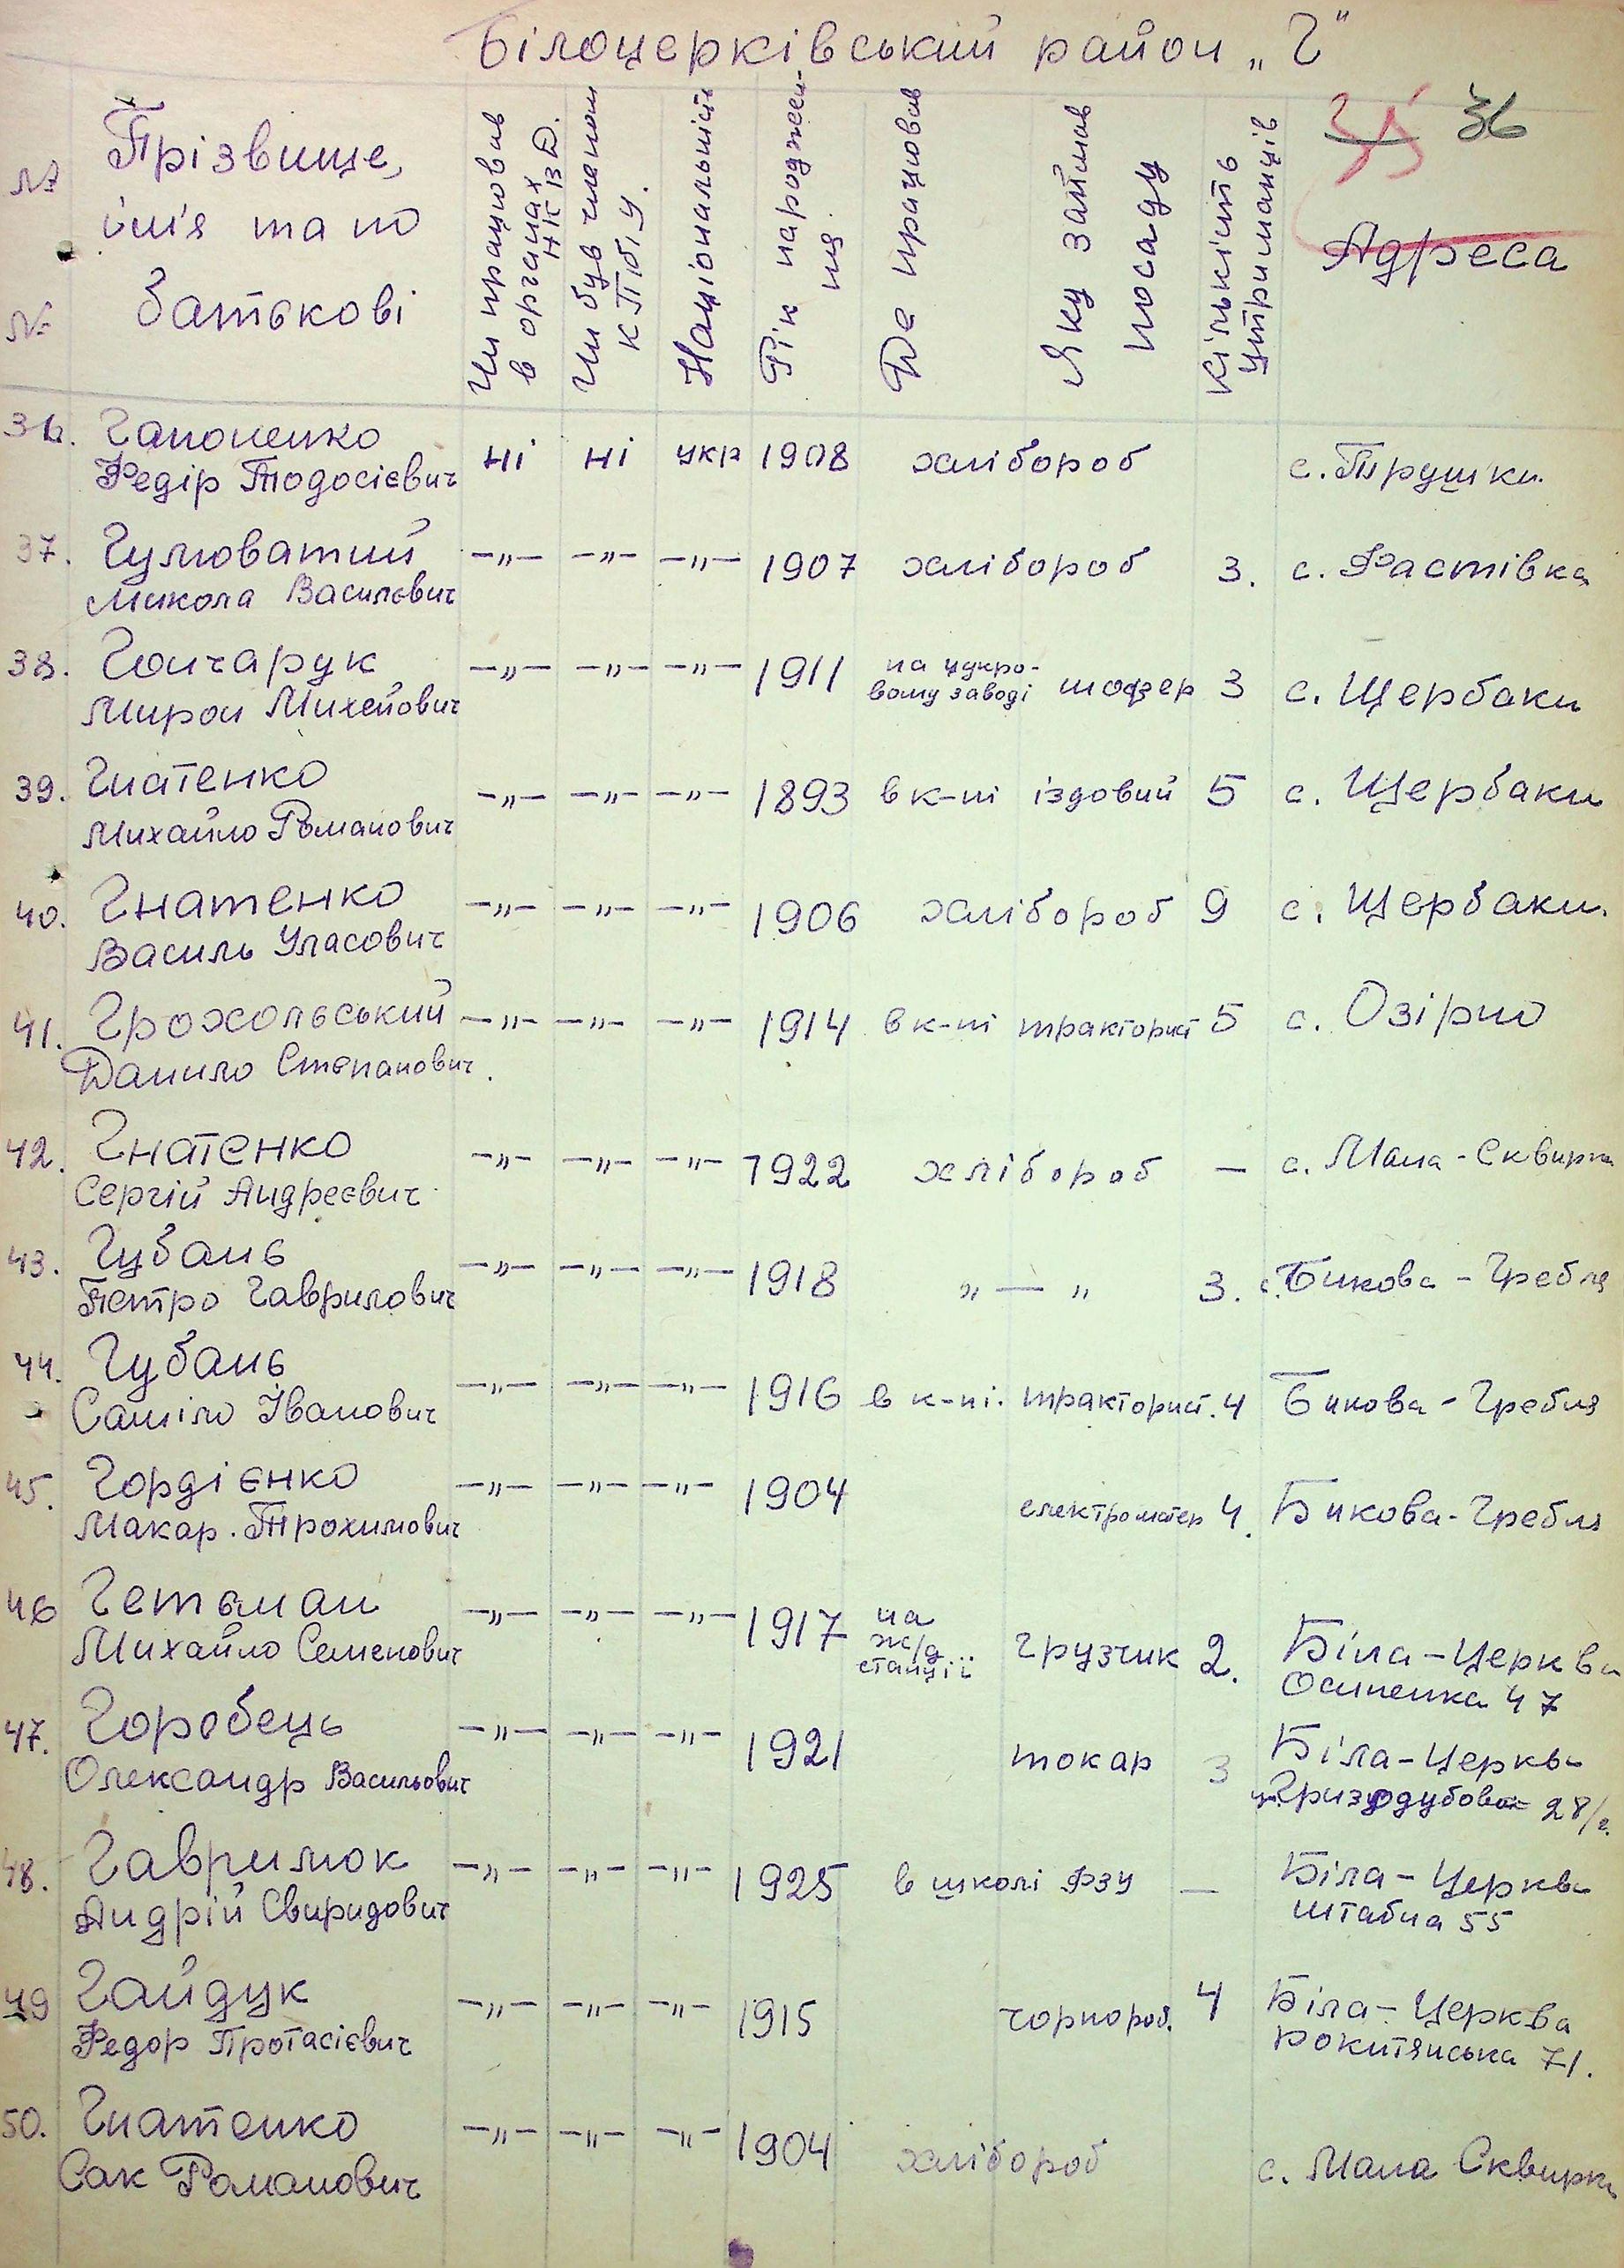 Білоцерківський район „Г"
35 36
№
Прізвище,
ім'я та по
№
батькові
Чи працював
в органах
НКВД.
Чи був членом
КП(б)У.
Національність
Рік народжен-
ня
Де працював
Яку займав
посаду
Кількість
утриманців
Адреса
36. Гапоненко
Федір Тодосієвич ні ні укр 1908 хлібороб с. Трушки.
37. Гулюватий
Микола Василєвич -„- -„- -„- 1907 хлібороб 3. с. Фастівка
38. Гончарук
Мирон Михейович -„- -„- -„- 1911 на цукро-
вому заводі шофер 3 с. Щербаки
39. Гнатенко
Михайло Романович -„- -„- -„- 1893 в к-пі їздовий 5 с. Щербаки
40. Гнатенко
Василь Уласович -„- -„- -„- 1906 хлібороб 9 с. Щербаки.
41. Грохольський
Данило Степанович. -„- -„- -„- 1914 в к-пі тракторист 5 с. Озірно
42. Гнатенко
Сергій Андреєвич -„- -„- -„- 1922 хлібороб — с. Мала-Сквирка
43. Губань
Петро Гаврилович -„- -„- -„- 1918 „ — „ 3. с. Бикова-Гребля
44. Губань
Саміло Іванович -„- -„- -„- 1916 в к-пі. тракторист. 4 Бикова-Гребля
45. Гордієнко
Макар. Трохимович -„- -„- -„- 1904 електроматер 4. Бикова-Гребля
46 Гетьман
Михайло Семенович -„- -„- -„- 1917 на
ж/д
станції грузчик 2. Біла-Церква
Осипенка 47
47. Горобець
Олександр Васильович -„- -„- -„- 1921 токар 3 Біла-Церква
ул. Гризодубової 28/2.
48. Гаврилюк
Андрій Свиридович -„- -„- -„- 1925 в школі ФЗУ — Біла-Церква
штабна 55
49 Гайдук
Федор Протасієвич -„- -„- -„- 1915 чорнороб. 4 Біла-Церква
Рокитянська 71.
50. Гнатенко
Сак Романович -„- -„- -„- 1904 хлібороб с. Мала Сквирка